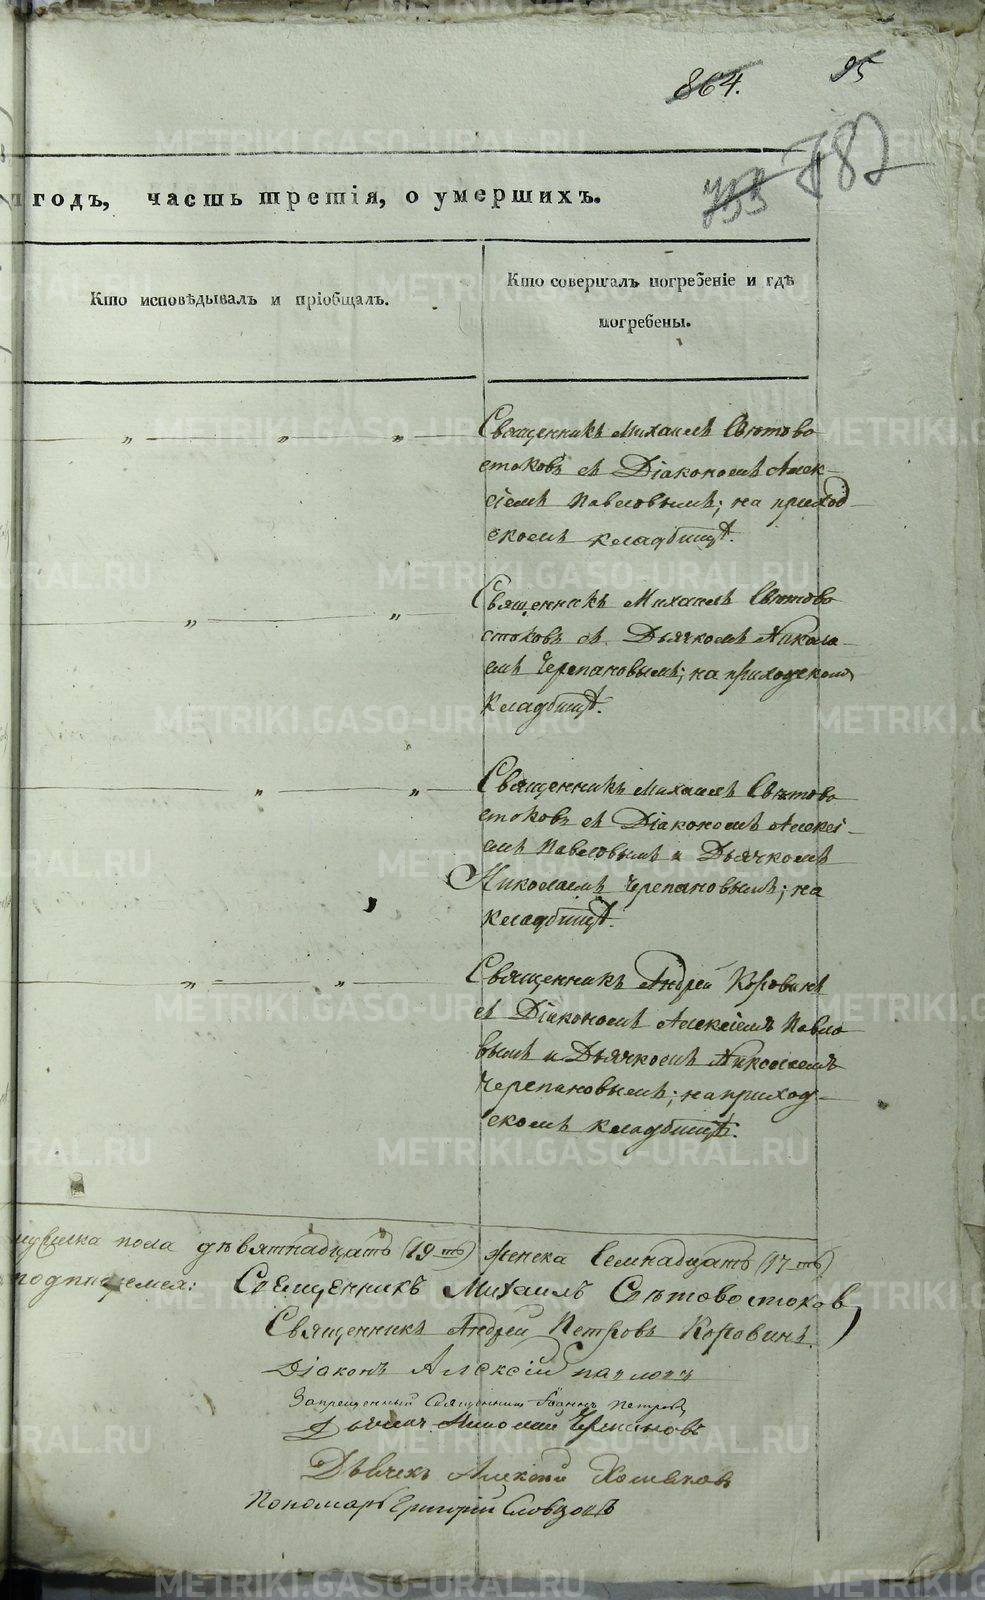 864. 95
353 782
годъ, часть третія, о умершихъ.
Кто исповѣдывалъ и пріобщалъ.
Кто совершалъ погребеніе и гдѣ
погребены.
Священникъ Михаилъ Свѣтово
стоковъ съ Діакономъ Алек-
сіемъ Павловымъ; на приход-
скомъ кладбищѣ.
Священникъ Михаилъ Свѣтово
стоковъ съ Дьячкомъ Никола-
емъ Черепановымъ; на приходском
кладбищѣ.
Священникъ Михаилъ Свѣтово
стоковъ съ Діакономъ Алексі-
емъ Павловымъ и Дьячкомъ
Николаемъ Черепановымъ; на
кладбищѣ.
Священникъ Андрей Коровинъ
съ Діакономъ Алексіемъ Павло
вымъ и Дьячкомъ Николаемъ
Черепановымъ; на приход-
скомъ кладбищѣ.
мужеска пола девятнадцать (19ть) женска Семнадцать (17ть)
подпишемся: Священникъ Михаилъ Свѣтовостоковъ
Священникъ Андрей Петровъ Коровинъ.
Діаконъ Алексій Павловъ
Запрещенный Священникъ Іоаннъ Петровъ
Дьячекъ Николай Черепановъ
Дьячекъ Алексій
Пономарь Григорій Словцовъ
METRIKI.GASO-URAL.RU